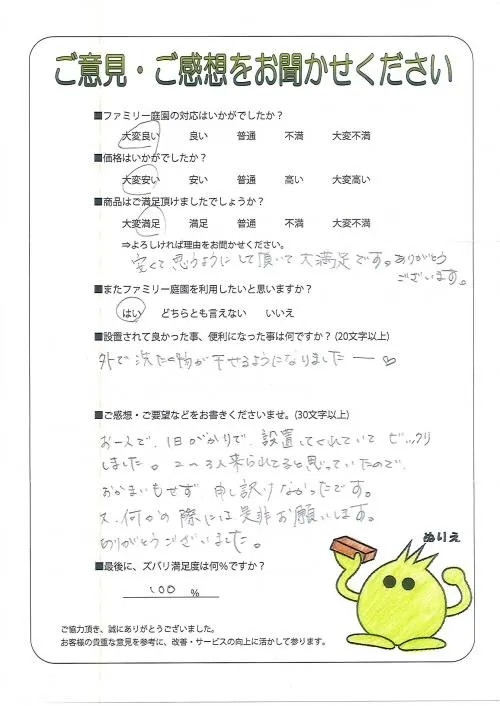 ご意見・ご感想をお聞かせください
■ファミリー庭園の対応はいかがでしたか？
大変良い 良い 普通 不満 大変不満
■価格はいかがでしたか？
大変安い 安い 普通 高い 大変高い
■商品はご満足頂けましたでしょうか？
大変満足 満足 普通 不満 大変不満
⇒よろしければ理由をお聞かせください。
安くて思うようにして頂いて大満足です。ありがとう
ございます。
■またファミリー庭園を利用したいと思いますか？
はい どちらとも言えない いいえ
■設置されて良かった事、便利になった事は何ですか？(20文字以上)
外で洗たく物が干せるようになりましたー♡
■ご感想・ご要望などをお書きくださいませ。(30文字以上)
お一人で、1日がかりで、設置してくれていてビックリ
しました。2〜3人来られてると思っていたので、
おかまいもせず、申し訳けなかったです。
又、何かの際には是非お願いします。
ありがとうございました。
■最後に、ズバリ満足度は何%ですか？
100 %
ぬりえ
ご協力頂き、誠にありがとうございました。
お客様の貴重な意見を参考に、改善・サービスの向上に活かして参ります。